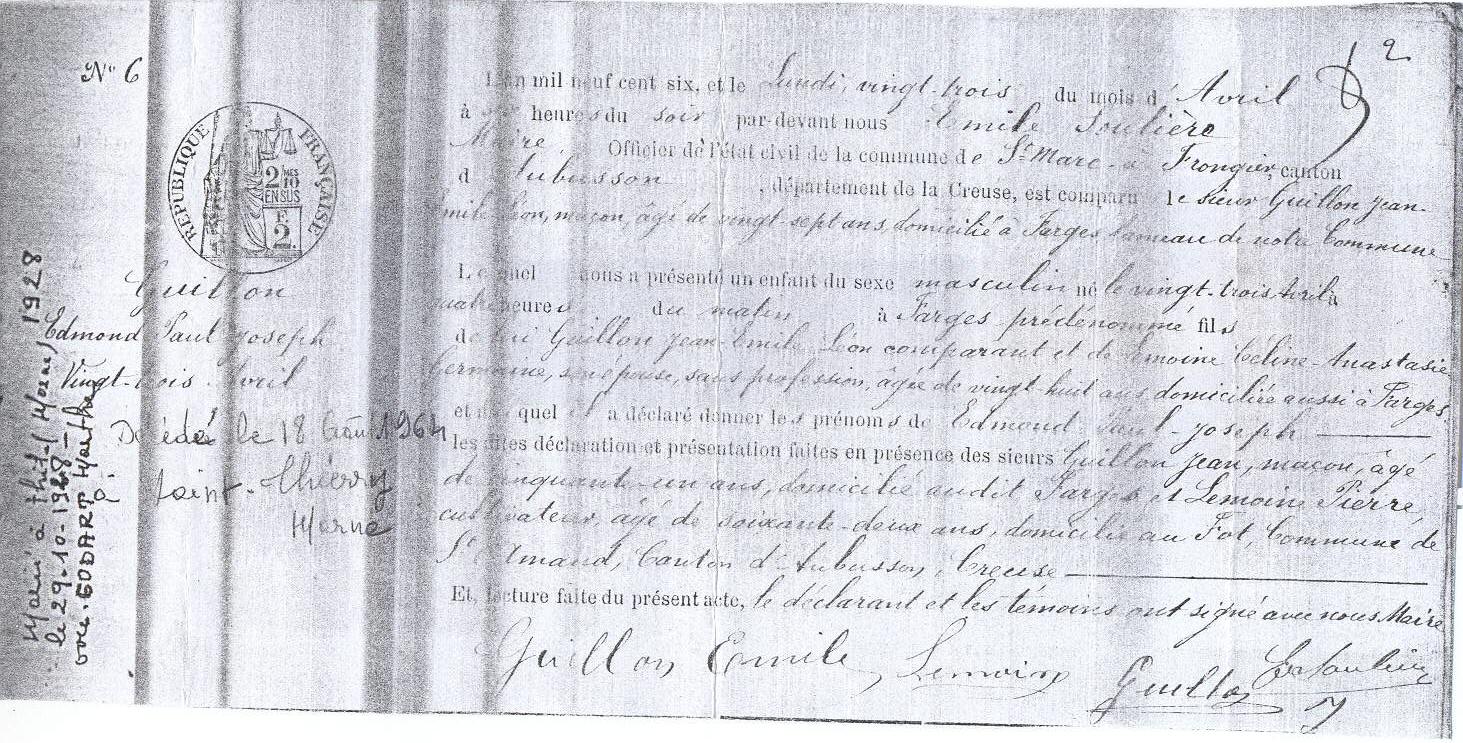 N° 6
2
RÉPUBLIQUE FRANÇAISE
2 MES
10
EN SUS
F.
2.
Guillon
Edmond Paul Joseph
Vingt-trois Avril
Décédé le 18 Août 1964
à Saint-Thierry
Marne
Marié à Thil (Marne) 1928
le 29-10-1928
avec GODART Marthe
L'an mil neuf cent six, et le Lundi, vingt-trois du mois d'Avril
à heures du soir par-devant nous Emile Soulière
Maire, Officier de l'état civil de la commune de St Marc-à-Frongier, canton
d'Aubusson, département de la Creuse, est comparu le sieur Guillon Jean-
Emile-Léon, maçon, âgé de vingt-sept ans, domicilié à Farges hameau de notre Commune
Lequel nous a présenté un enfant du sexe masculin né le vingt-trois Avril à
quatre heures du matin à Farges prédénommé fils
de lui Guillon Jean-Emile Léon comparant et de Lemoine Céline-Anastasie
Germaine, son épouse, sans profession, âgée de vingt-huit ans domiciliée aussi à Farges
et auquel il a déclaré donner les prénoms de Edmond-Paul-Joseph
les dites déclaration et présentation faites en présence des sieurs Guillon Jean, maçon, âgé
de cinquante-un ans, domicilié audit Farges, et Lemoine Pierre,
cultivateur, âgé de soixante-deux ans, domicilié au Fot, Commune de
St Amand, Canton d'Aubusson, Creuse
Et, lecture faite du présent acte, le déclarant et les témoins ont signé avec nous Maire
Guillon Emile Lemoine Guillon